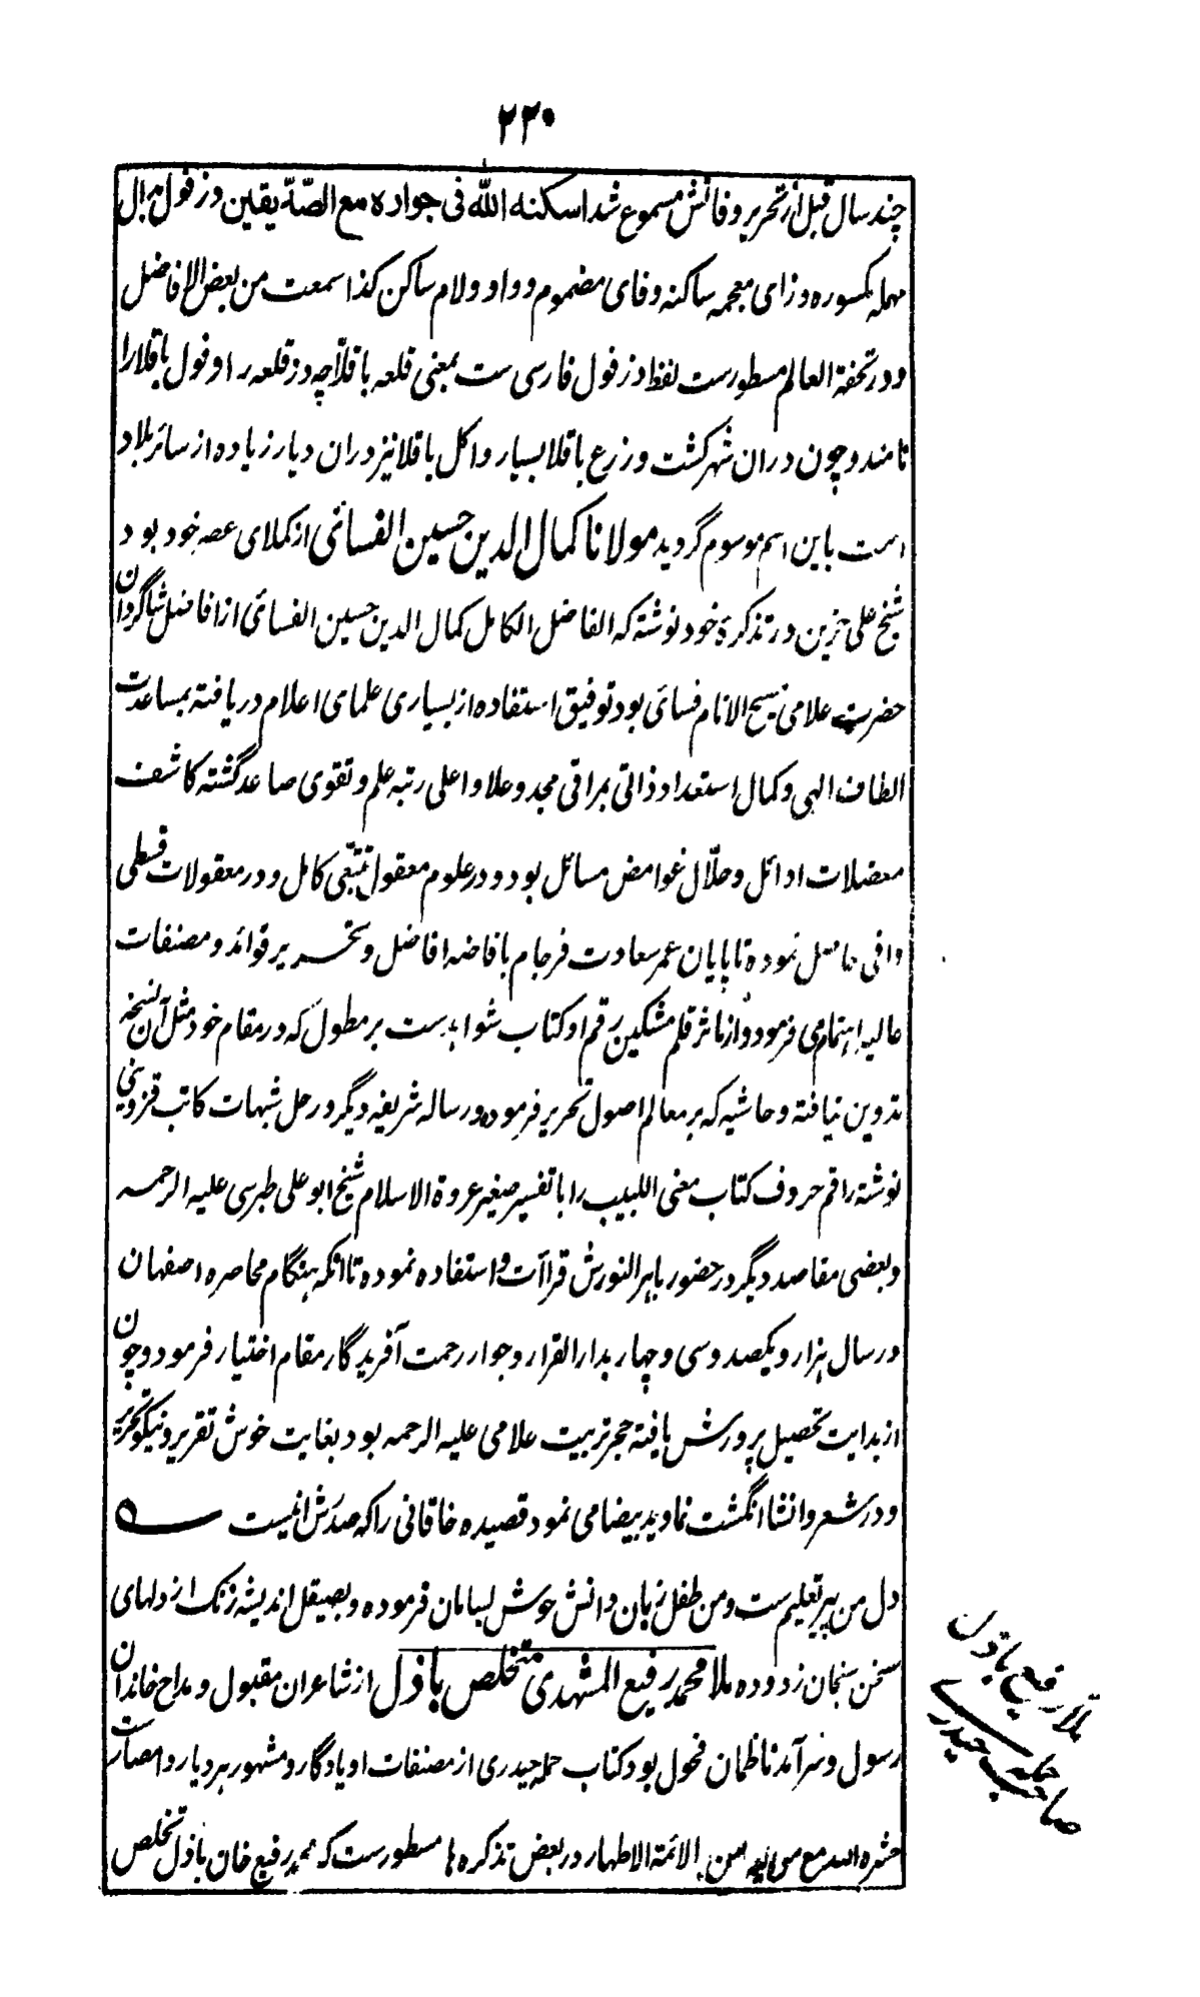 ۲۲۰
چند سال قبل از تحریر وفاتش مسموع شد اسکنه الله فی جواره مع الصدّیقین و زفول بدال
مهمله مکسوره و زای معجمه ساکنه و فای مضموم و واو و لام ساکن کذا سمعت من بعض الافاضل
و در تحفة العالم مسطورست لفظ دزفول فارسی ست بمعنی قلعه باقلا چه دز قلعه را و فول باقلا را
نامند و چون دران شهر کشت و زرع باقلا بسیار و اکل باقلا نیز دران دیار زیاده از سائر بلاد
است باین اسم موسوم گردید مولانا کمال الدین حسین الفسائی از کملای عصر خود بود
شیخ علی حزین در تذکرهٔ خود نوشته که الفاضل الکامل کمال الدین حسین الفسائی از افاضل شاگردان
حضرت علامی مسیح الانام فسائی بود توفیق استفاده از بسیاری علمای اعلام دریافته بمساعدت
الطاف الهی و کمال استعداد ذاتی بمراقی مجد و علا و اعلی رتبه علم و تقوی صاعد گشته کاشف
معضلات اوائل و حلّال غوامض مسائل بود و در علوم معقول تتبّعی کامل و در معقولات قسطی
وافی حاصل نموده تا پایان عمر سعادت فرجام بافاضه افاضل و تحریر فوائد و مصنفات
عالیه اهتمام می فرمود و از ماثر قلم مشکین رقم او کتاب شواهدست بر مطول که در مقام خود مثل آن نسخه
تدوین نیافته و حاشیه که بر معالم اصول تحریر فرموده و رساله شریفه دیگر در حل شبهات کاتب قزوینی
نوشته راقم حروف کتاب مغنی اللبیب را با تفسیر صغیر عروة الاسلام شیخ ابو علی طبرسی علیه الرحمه
و بعضی مقاصد دیگر در حضور باهر النورش قراآت و استفاده نموده تا آنکه هنگام محاصره اصفهان
در سال هزار و یکصد و سی و چهار بدار القرار و جوار رحمت آفریدگار مقام اختیار فرمود و چون
از بدایت تحصیل پرورش یافته حجر تربیت علامی علیه الرحمه بود بغایت خوش تقریر و نیکو تحریر
و در شعر و انشا انگشت نما و ید بیضا می نمود قصیده خاقانی را که صدرش اینست
دل من پیر تعلیم ست و من طفل زبان دانش خوش لسامان فرموده و بصیقل اندیشه زنگ از دلهای
سخن سنجان زدوده ملا محمد رفیع المشهدی متخلص باذل از شاعران مقبول و مداح خاندان
رسول و سرآمد ناظمان فحول بود و کتاب حمله حیدری از مصنفات او یادگار و مشهور هر دیار و امصارست
حشره الله مع موالیه من الائمة الاطهار در بعض تذکره ها مسطورست که محمد رفیع خان باذل تخلص
ملا رفیع باذل
صاحب حمله حیدری